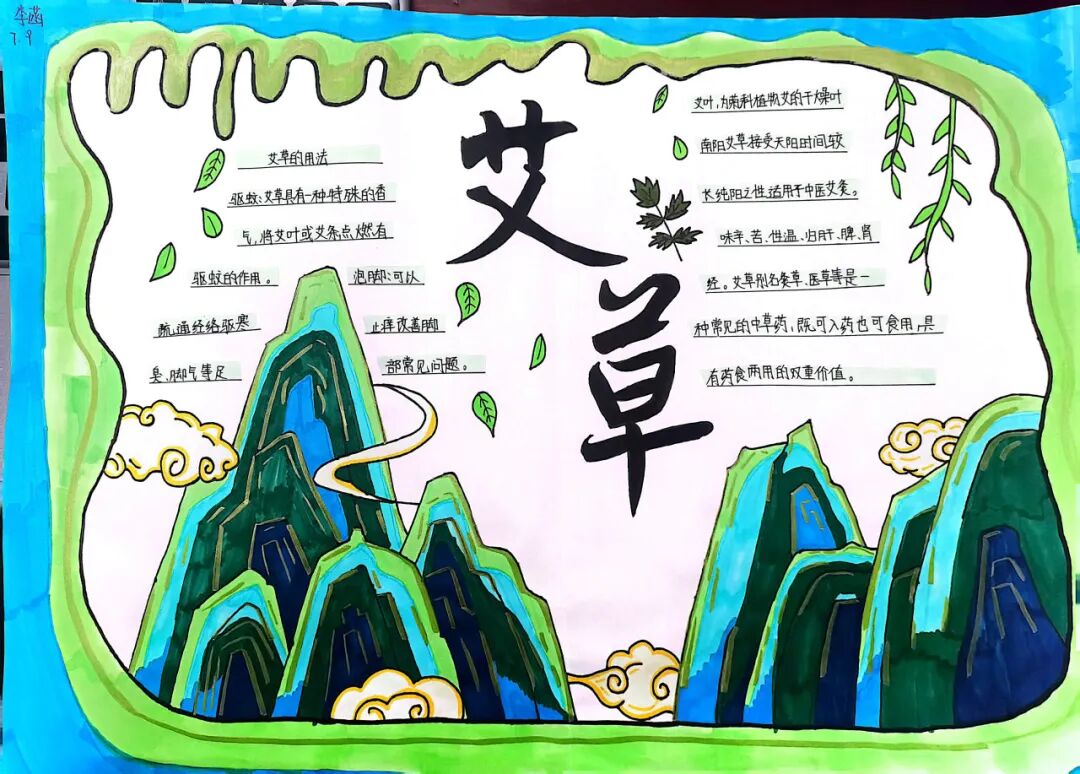 李菡
7.9
艾草
艾草的用法
驱蚊:艾草具有一种特殊的香
气,将艾叶或艾条点燃有
驱蚊的作用。 泡脚:可以
疏通经络驱寒 止痒改善脚
臭、脚气等足 部常见问题。
艾叶,为菊科植物艾的干燥叶
南阳艾草接受天阳时间较
长纯阳之性适用于中医艾灸。
味辛、苦、性温、归肝、脾、肾
经。艾草别名灸草、医草等是一
种常见的中草药,既可入药也可食用,具
有药食两用的双重价值。